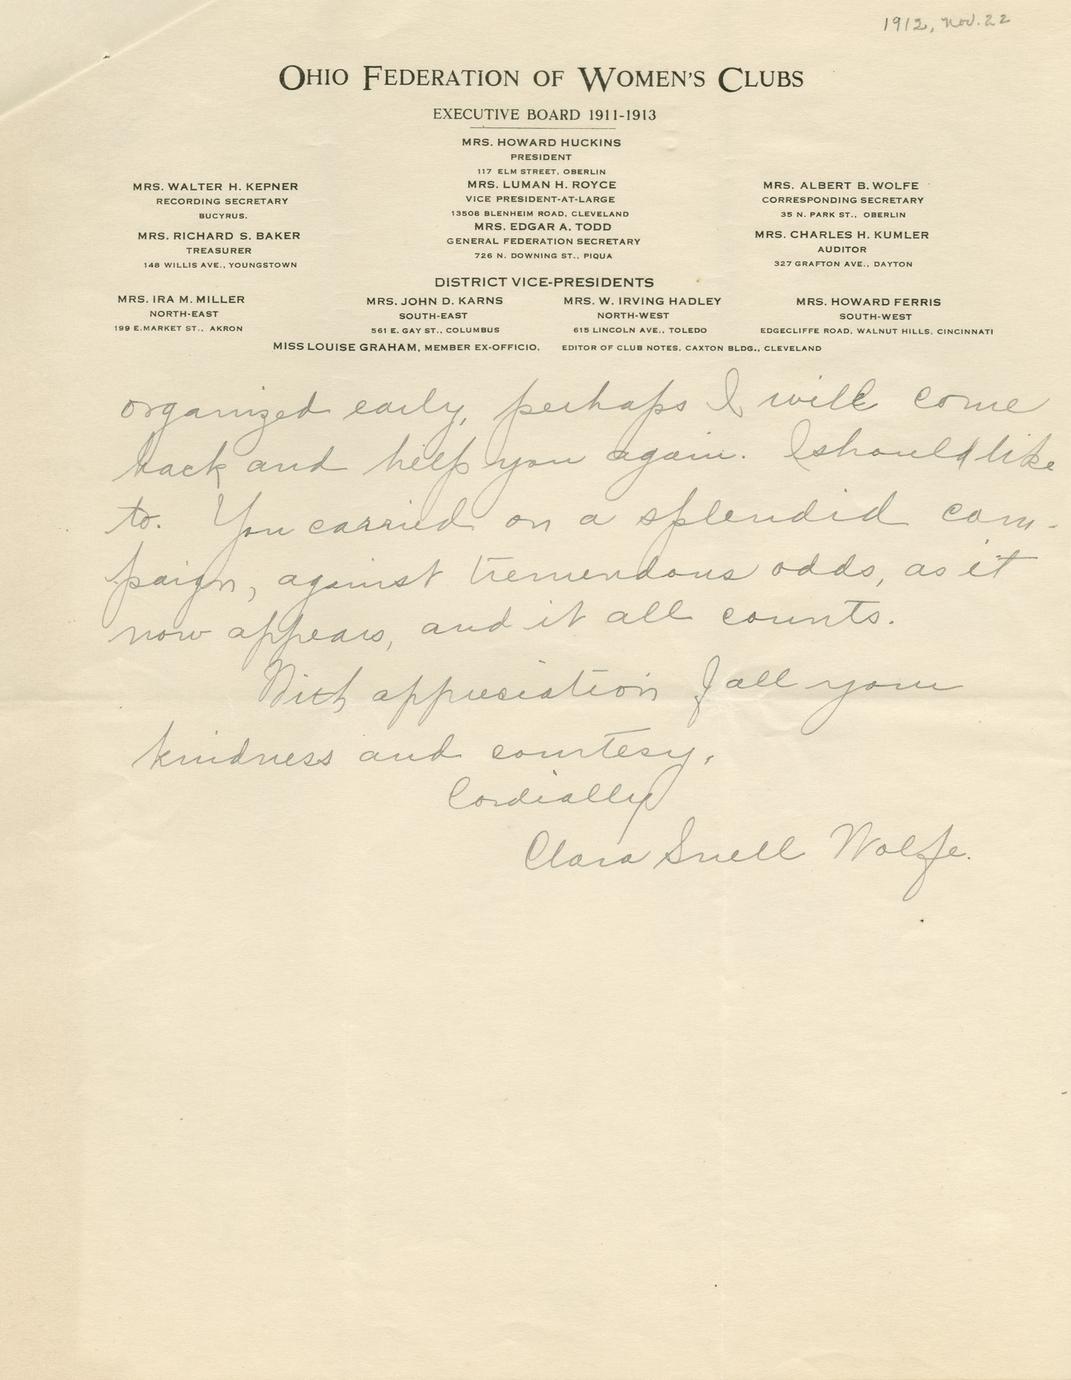 1912, Nov. 22
OHIO FEDERATION OF WOMEN'S CLUBS
EXECUTIVE BOARD 1911-1913
MRS. HOWARD HUCKINS
PRESIDENT
117 ELM STREET, OBERLIN
MRS. LUMAN H. ROYCE
VICE PRESIDENT-AT-LARGE
13508 BLENHEIM ROAD, CLEVELAND
MRS. EDGAR A. TODD
GENERAL FEDERATION SECRETARY
726 N. DOWNING ST., PIQUA
MRS. WALTER H. KEPNER
RECORDING SECRETARY
BUCYRUS.
MRS. RICHARD S. BAKER
TREASURER
148 WILLIS AVE., YOUNGSTOWN
MRS. ALBERT B. WOLFE
CORRESPONDING SECRETARY
35 N. PARK ST., OBERLIN
MRS. CHARLES H. KUMLER
AUDITOR
327 GRAFTON AVE., DAYTON
DISTRICT VICE-PRESIDENTS
MRS. IRA M. MILLER
NORTH-EAST
199 E. MARKET ST., AKRON
MRS. JOHN D. KARNS
SOUTH-EAST
561 E. GAY ST., COLUMBUS
MRS. W. IRVING HADLEY
NORTH-WEST
615 LINCOLN AVE., TOLEDO
MRS. HOWARD FERRIS
SOUTH-WEST
EDGECLIFFE ROAD, WALNUT HILLS, CINCINNATI
MISS LOUISE GRAHAM, MEMBER EX-OFFICIO, EDITOR OF CLUB NOTES, CAXTON BLDG., CLEVELAND
organized early, perhaps I will come
back and help you again. I should like
to. You carried on a splendid cam-
paign, against tremendous odds, as it
now appears, and it all counts.
With appreciation of all your
kindness and courtesy,
Cordially
Clara Snell Wolfe.